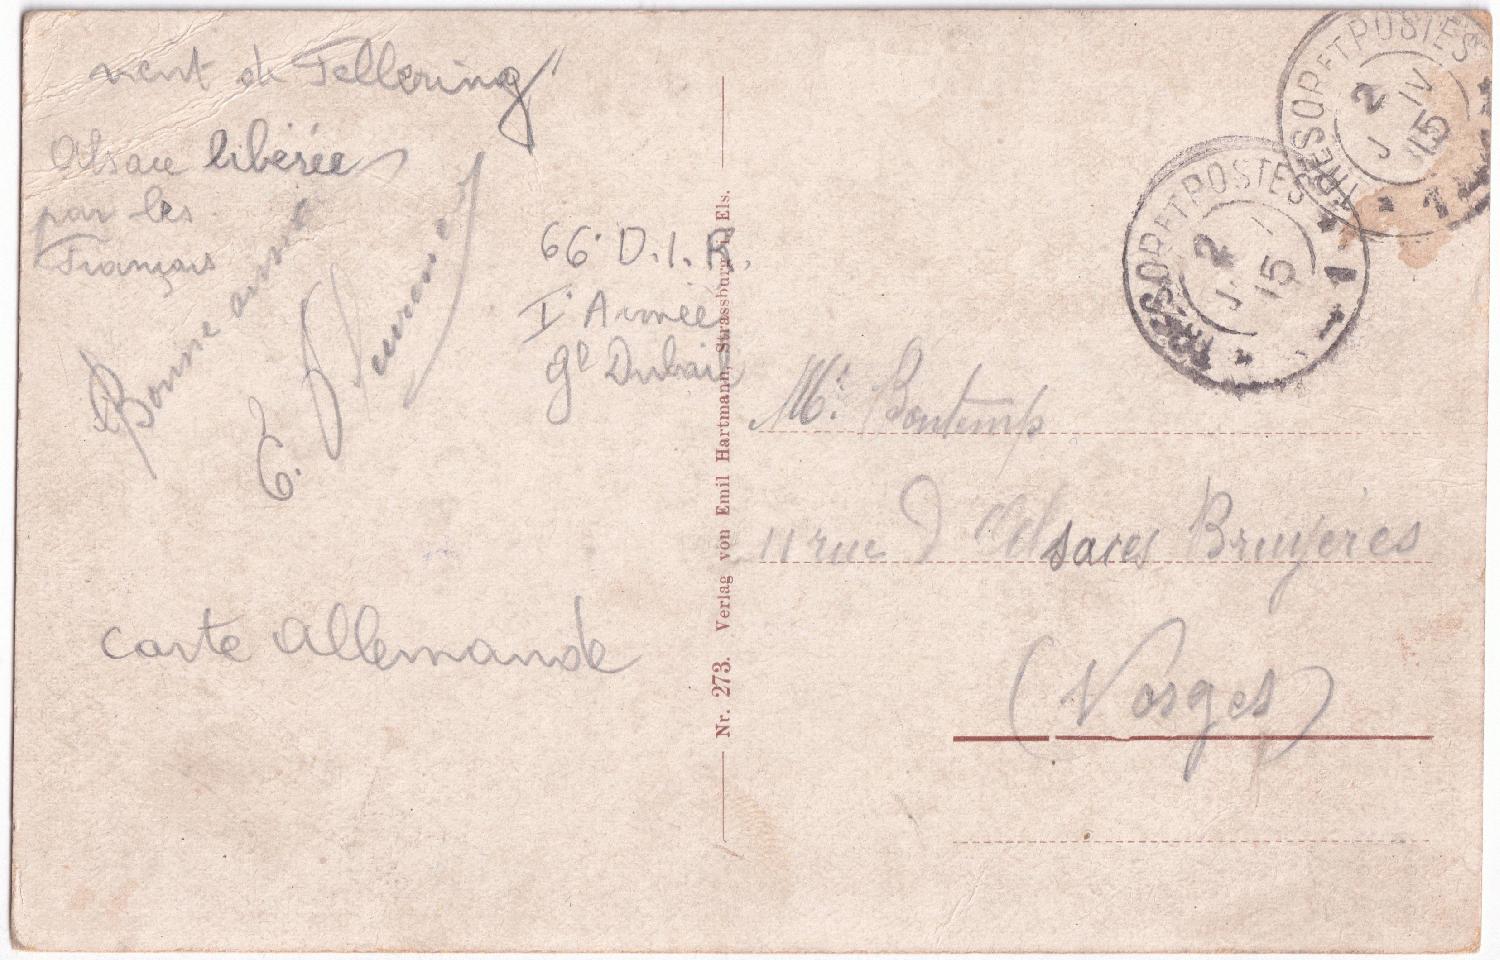 vient de Fellering
Alsace libérée
par les
Français
Bonne année
E.
66e D.I.R.
Ie Armée
gl Dubail
carte allemande
Nr. 273. Verlag von Emil Hartmann, Strassburg i. Els.
TRESOR ET POSTES
2
15
1
TRESOR ET POSTES
2
15
1
Mr. Bontemps
11 rue d'Alsaces Bruyères
(Vosges)